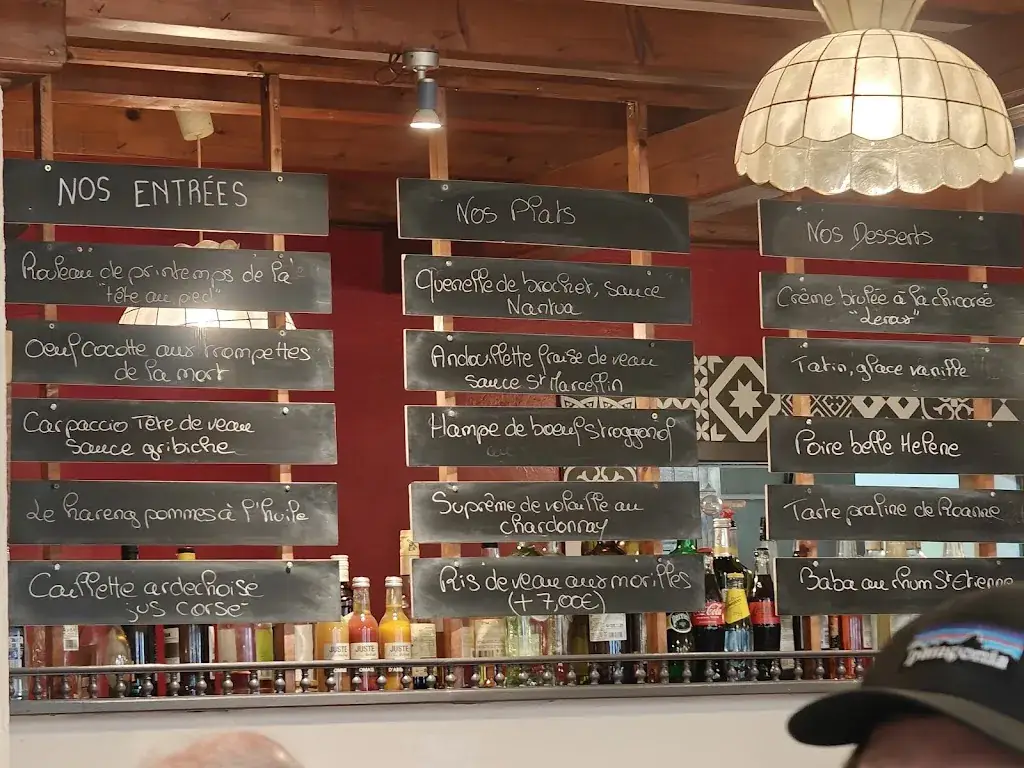 NOS ENTRÉES
Rouleau de printemps de la
"tête au pied"
Oeuf Cocotte aux trompettes
de la mort
Carpaccio Tête de veau
Sauce gribiche
Le hareng pommes à l'huile
Caillette ardechoise
jus corsé
Nos Plats
Quenelle de brochet, sauce
Nantua
Andouillette fraise de veau
sauce St Marcellin
Hampe de boeuf stroggonof
Suprême de volaille au
chardonnay
Ris de veau aux morilles
(+ 7,00€)
Nos Desserts
Crème brulée à la chicorée
"Leroux"
Tatin, glace vanille
Poire belle Helene
Tarte praline de Roanne
Baba au rhum St Etienne
JUSTE
JUSTE
JUSTE
patagonia